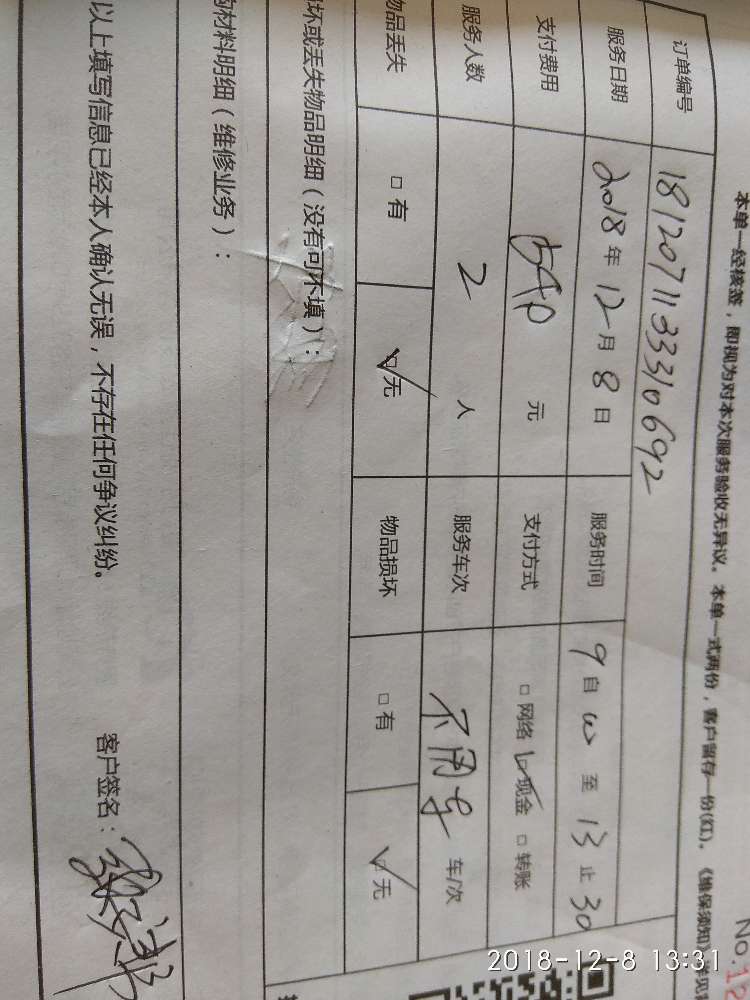 本单一经核签，即视为对本次服务验收无异议。本单一式两份，客户留存一份(红)。《维保须知》
No.12
订单编号 181207113331 0692
服务日期 2018年12月8日 服务时间 9自00至13止30
支付费用 元 支付方式 □网络 ☑现金 □转账
服务人数 2人 服务车次 不用车 车/次
物品丢失 □有 ☑无 物品损坏 □有 ☑无
坏或丢失物品明细（没有可不填）：
材料明细（维修业务）：
以上填写信息已经本人确认无误，不存在任何争议纠纷。
客户签名：
2018-12-8 13:31